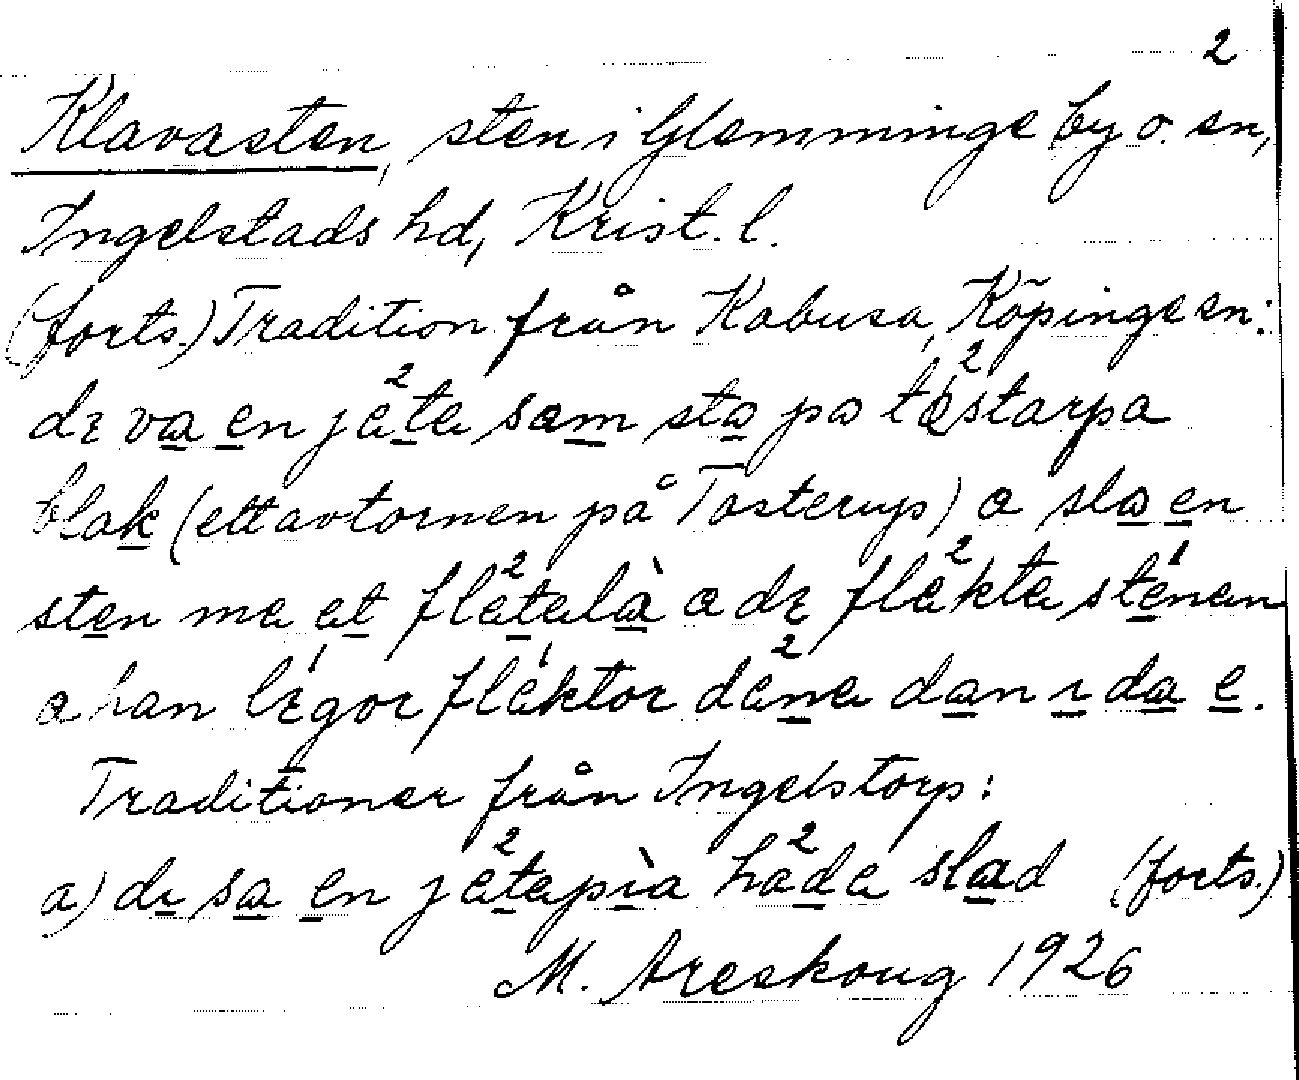 2
Klavasten, sten i Glemminge by o. sn,
Ingelstads hd, Krist. l.
(forts.) Tradition från Kabusa, Köpinge sn:
dɛ va en jæ²ta sɑm sto po tó²starpa
blak (ett av tornen på Tosterup) ɑ slo en
sten mæ et flæ²talà ɑ dɛ flæ²kta sténan
ɑ han lɛ́gor flǽktor dæ²na dan ɪ da e.
Traditioner från Ingelstorp:
a) dɪ sa en jæ²tapìa ha²da slad (forts.)
M. Areskoug 1926